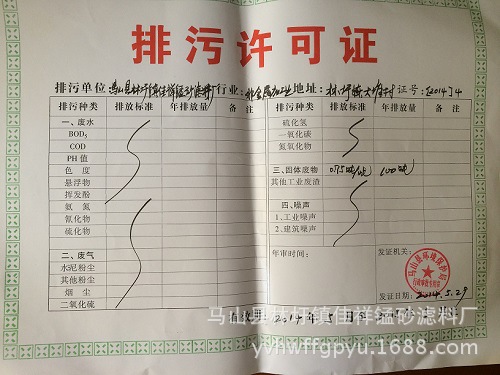 排污许可证
排污单位: 马山县林圩镇佳祥锰砂滤料厂 行业: 非金属加工业 地址: 证号: [2014]4
排污种类 排放标准 年排放量 备注 排污种类 排放标准 年排放量 备注
一、废水
BOD5
COD
PH值
色度
悬浮物
挥发酚
氨氮
氰化物
硫化物
二、废气
水泥粉尘
其他粉尘
烟尘
二氧化硫
硫化氢
一氧化碳
氮氧化物
三、固体废物 100吨
其他工业废渣
四、噪声
1.工业噪声
2.建筑噪声
年审时间: 发证机关:
马山县环境保护局
发证日期: 2014.5.29
马山县林圩镇佳祥锰砂滤料厂
yvhwffgpyu.1688.com